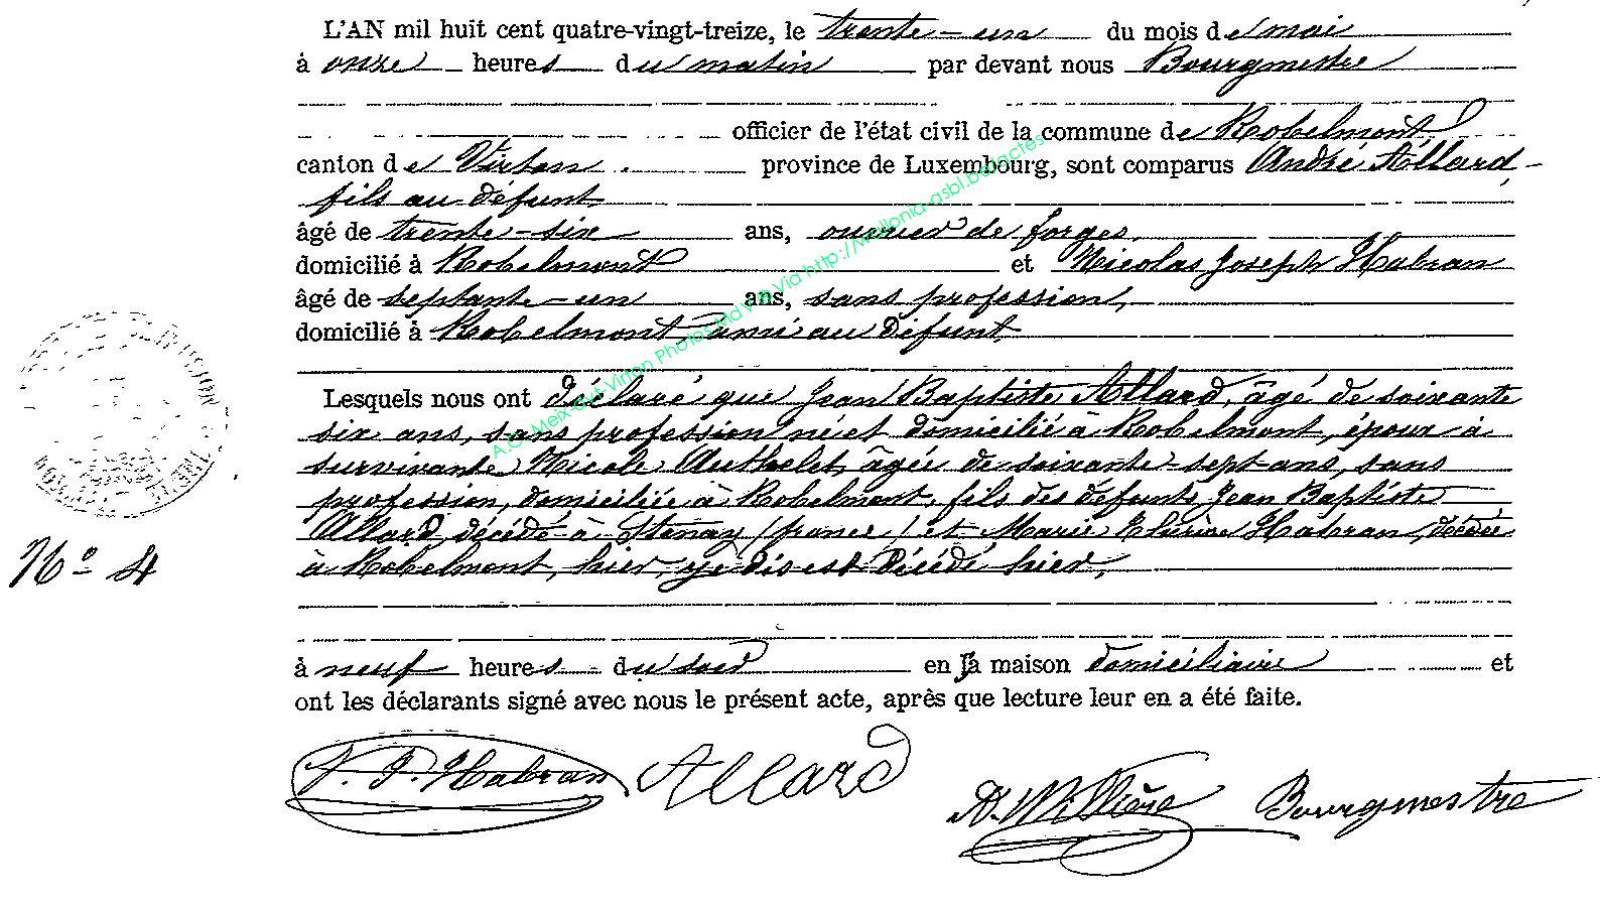 L'AN mil huit cent quatre-vingt-treize, le trente-un du mois de mai
à onze heures du matin par devant nous Bourgmestre
officier de l'état civil de la commune de Robelmont
canton de Virton province de Luxembourg, sont comparus André Allard,
fils au défunt,
âgé de trente-six ans, ouvrier de forges,
domicilié à Robelmont et Nicolas Joseph Habran
âgé de septante-un ans, sans profession,
domicilié à Robelmont, ami au défunt,
Lesquels nous ont déclaré que Jean Baptiste Allard, âgé de soixante
six ans, sans profession né et domicilié à Robelmont, époux à
survivante Nicole Authelet, âgée de soixante-sept ans, sans
profession, domiciliée à Robelmont, fils des défunts Jean Baptiste
Allard, décédé à Stenay (france) et Marie Habran, décédée
à Robelmont, hier, je dis est décédé hier,
à neuf heures du soir en sa maison domiciliaire et
ont les déclarants signé avec nous le présent acte, après que lecture leur en a été faite.
N° 4
N. J. Habran Allard
Bourgmestre